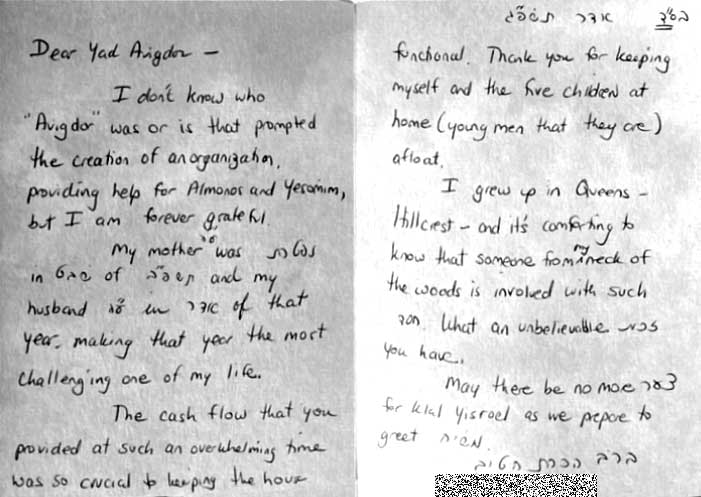 Dear Yad Avigdor —
I don't know who
"Avigdor" was or is that prompted
the creation of an organization,
providing help for Almonos and Yesomim,
but I am forever grateful.
My mother ע"ה was נפטרת
in שבט of תשפ"ב and my
husband in אדר of that
year, making that year the most
challenging one of my life.
The cash flow that you
provided at such an overwhelming time
was so crucial to keeping the house
בס"ד אדר תשפ"ג
functional. Thank you for keeping
myself and the five children at
home (young men that they are)
afloat.
I grew up in Queens -
Hillcrest - and it's comforting to
know that someone from my neck of
the woods is involved with such
חסד. What an unbelievable זכות
you have.
May there be no more צער
for Klal Yisroel as we prepare to
greet משיח.
ברב הכרת הטוב